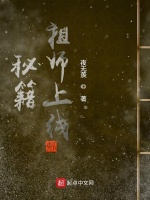 著
祖师上线
秘籍
起点中文网